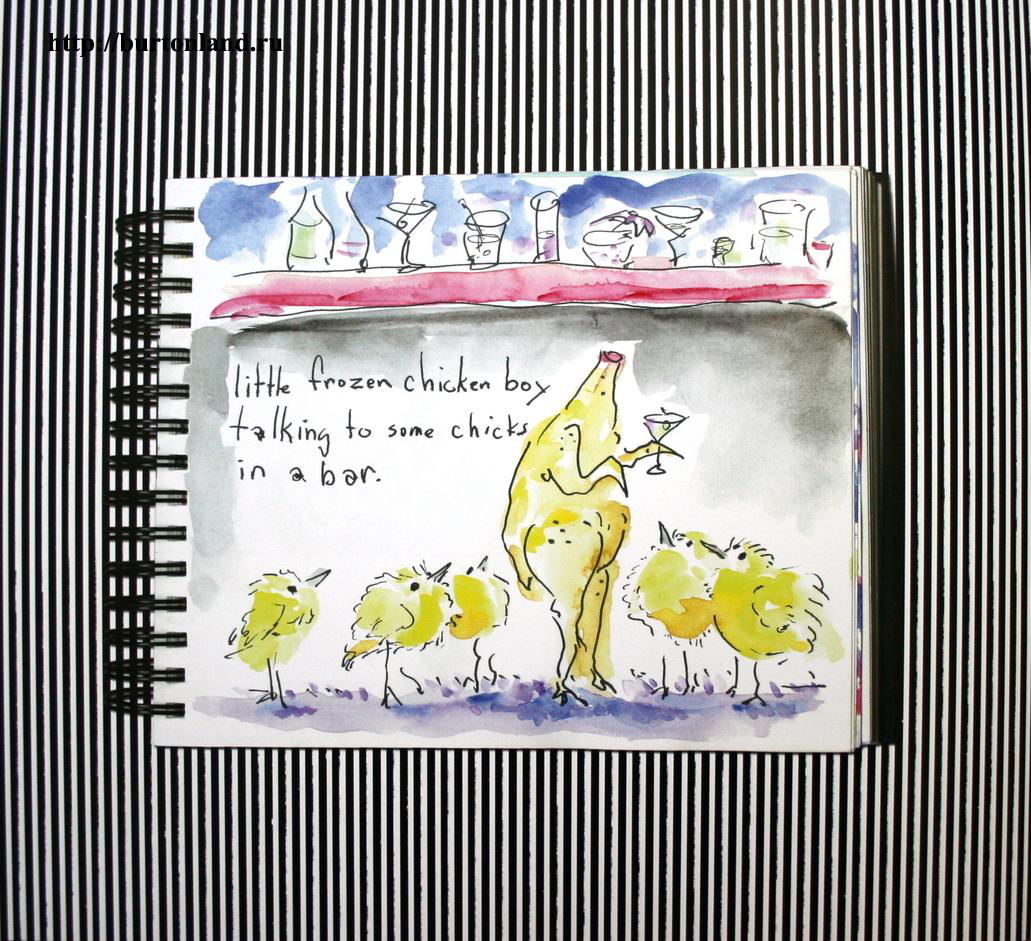 http://burtonland.ru
little frozen chicken boy
talking to some chicks
in a bar.